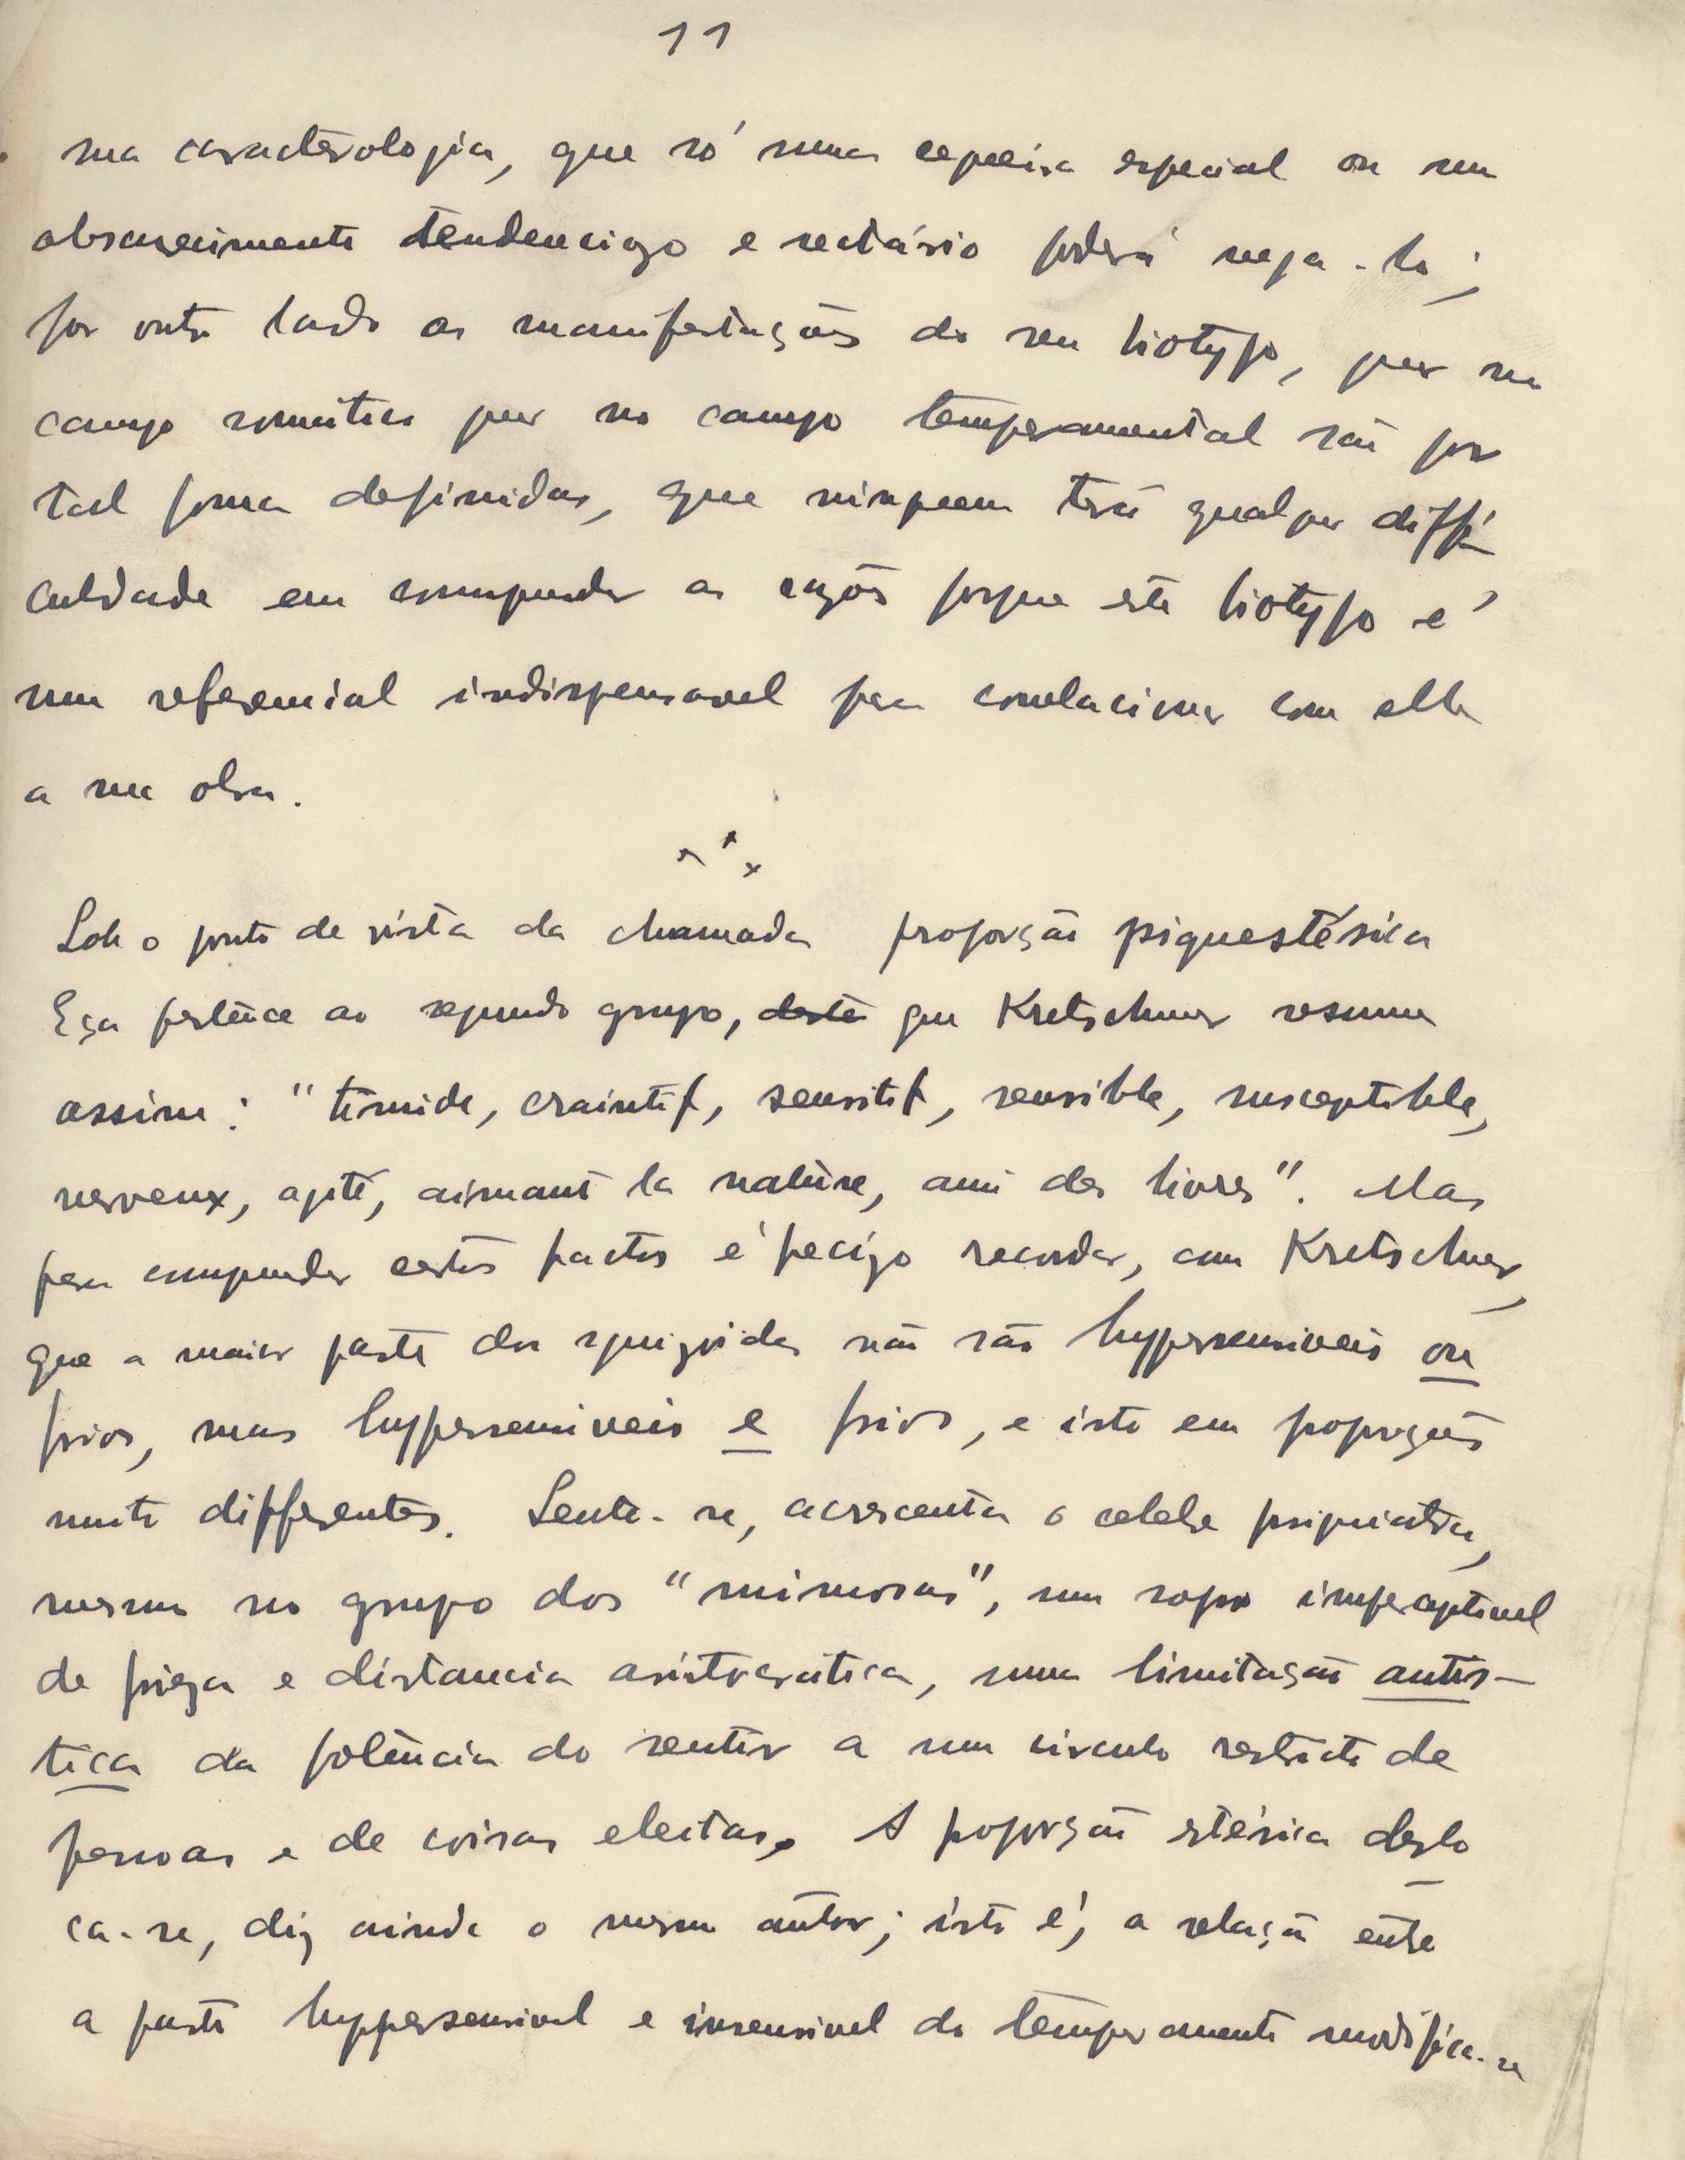 11
sua caracterologia, que só uma cegueira especial ou um
obscurecimento tendencioso e sectário poderá nega-lo;
por outro lado as manifestações do seu biotypo, quer no
campo somático quer no campo temperamental são por
tal forma definidas, que ninguem terá qualquer diffi
culdade em comprender as razões porque este biotypo é
um referencial indispensavel para correlacionar com elle
a sua obra.
x x x
Sob o ponto de vista da chamada proporção psiquestésica
Eça pertence ao segundo grupo, deste que Kretschmer resume
assim: "timide, craintif, sensitif, sensible, susceptible,
nerveux, agité, aimant la nature, ami des livres". Mas
para comprender estes factos é preciso recordar, com Kretschmer,
que a maior parte dos squizoides não são hypersensiveis ou
frios, mas hypersensiveis e frios, e isto em proporções
muito differentes. Sente-se, acrescenta o celebre psiquiatra,
mesmo no grupo dos "mimosas", um sopro imperceptivel
de frieza e distancia aristocrática, uma limitação autis-
tica da potência do sentir a um circulo restricto de
pessoas e de coisas eleitas. A proporção estésica deslo
ca-se, diz ainda o mesmo autor; isto é, a relação entre
a parte hyppersensivel e insensivel do temperamento modifica-se